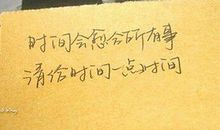 时间会愈合所有事
请给时间一点时间